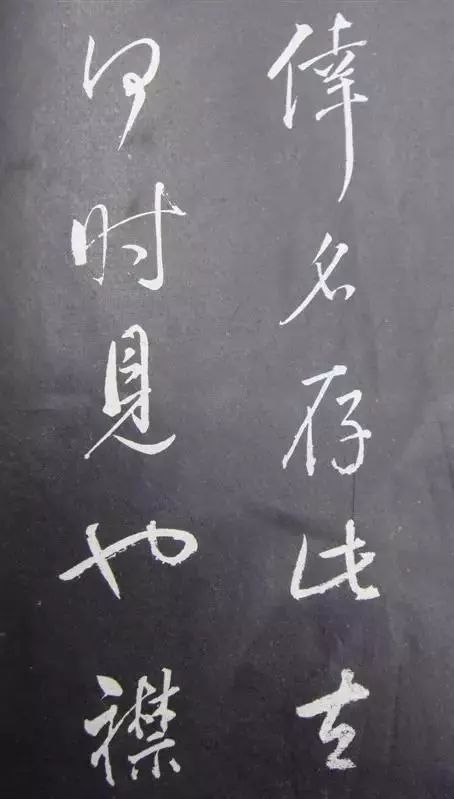 倖名存此去
何时見也襟